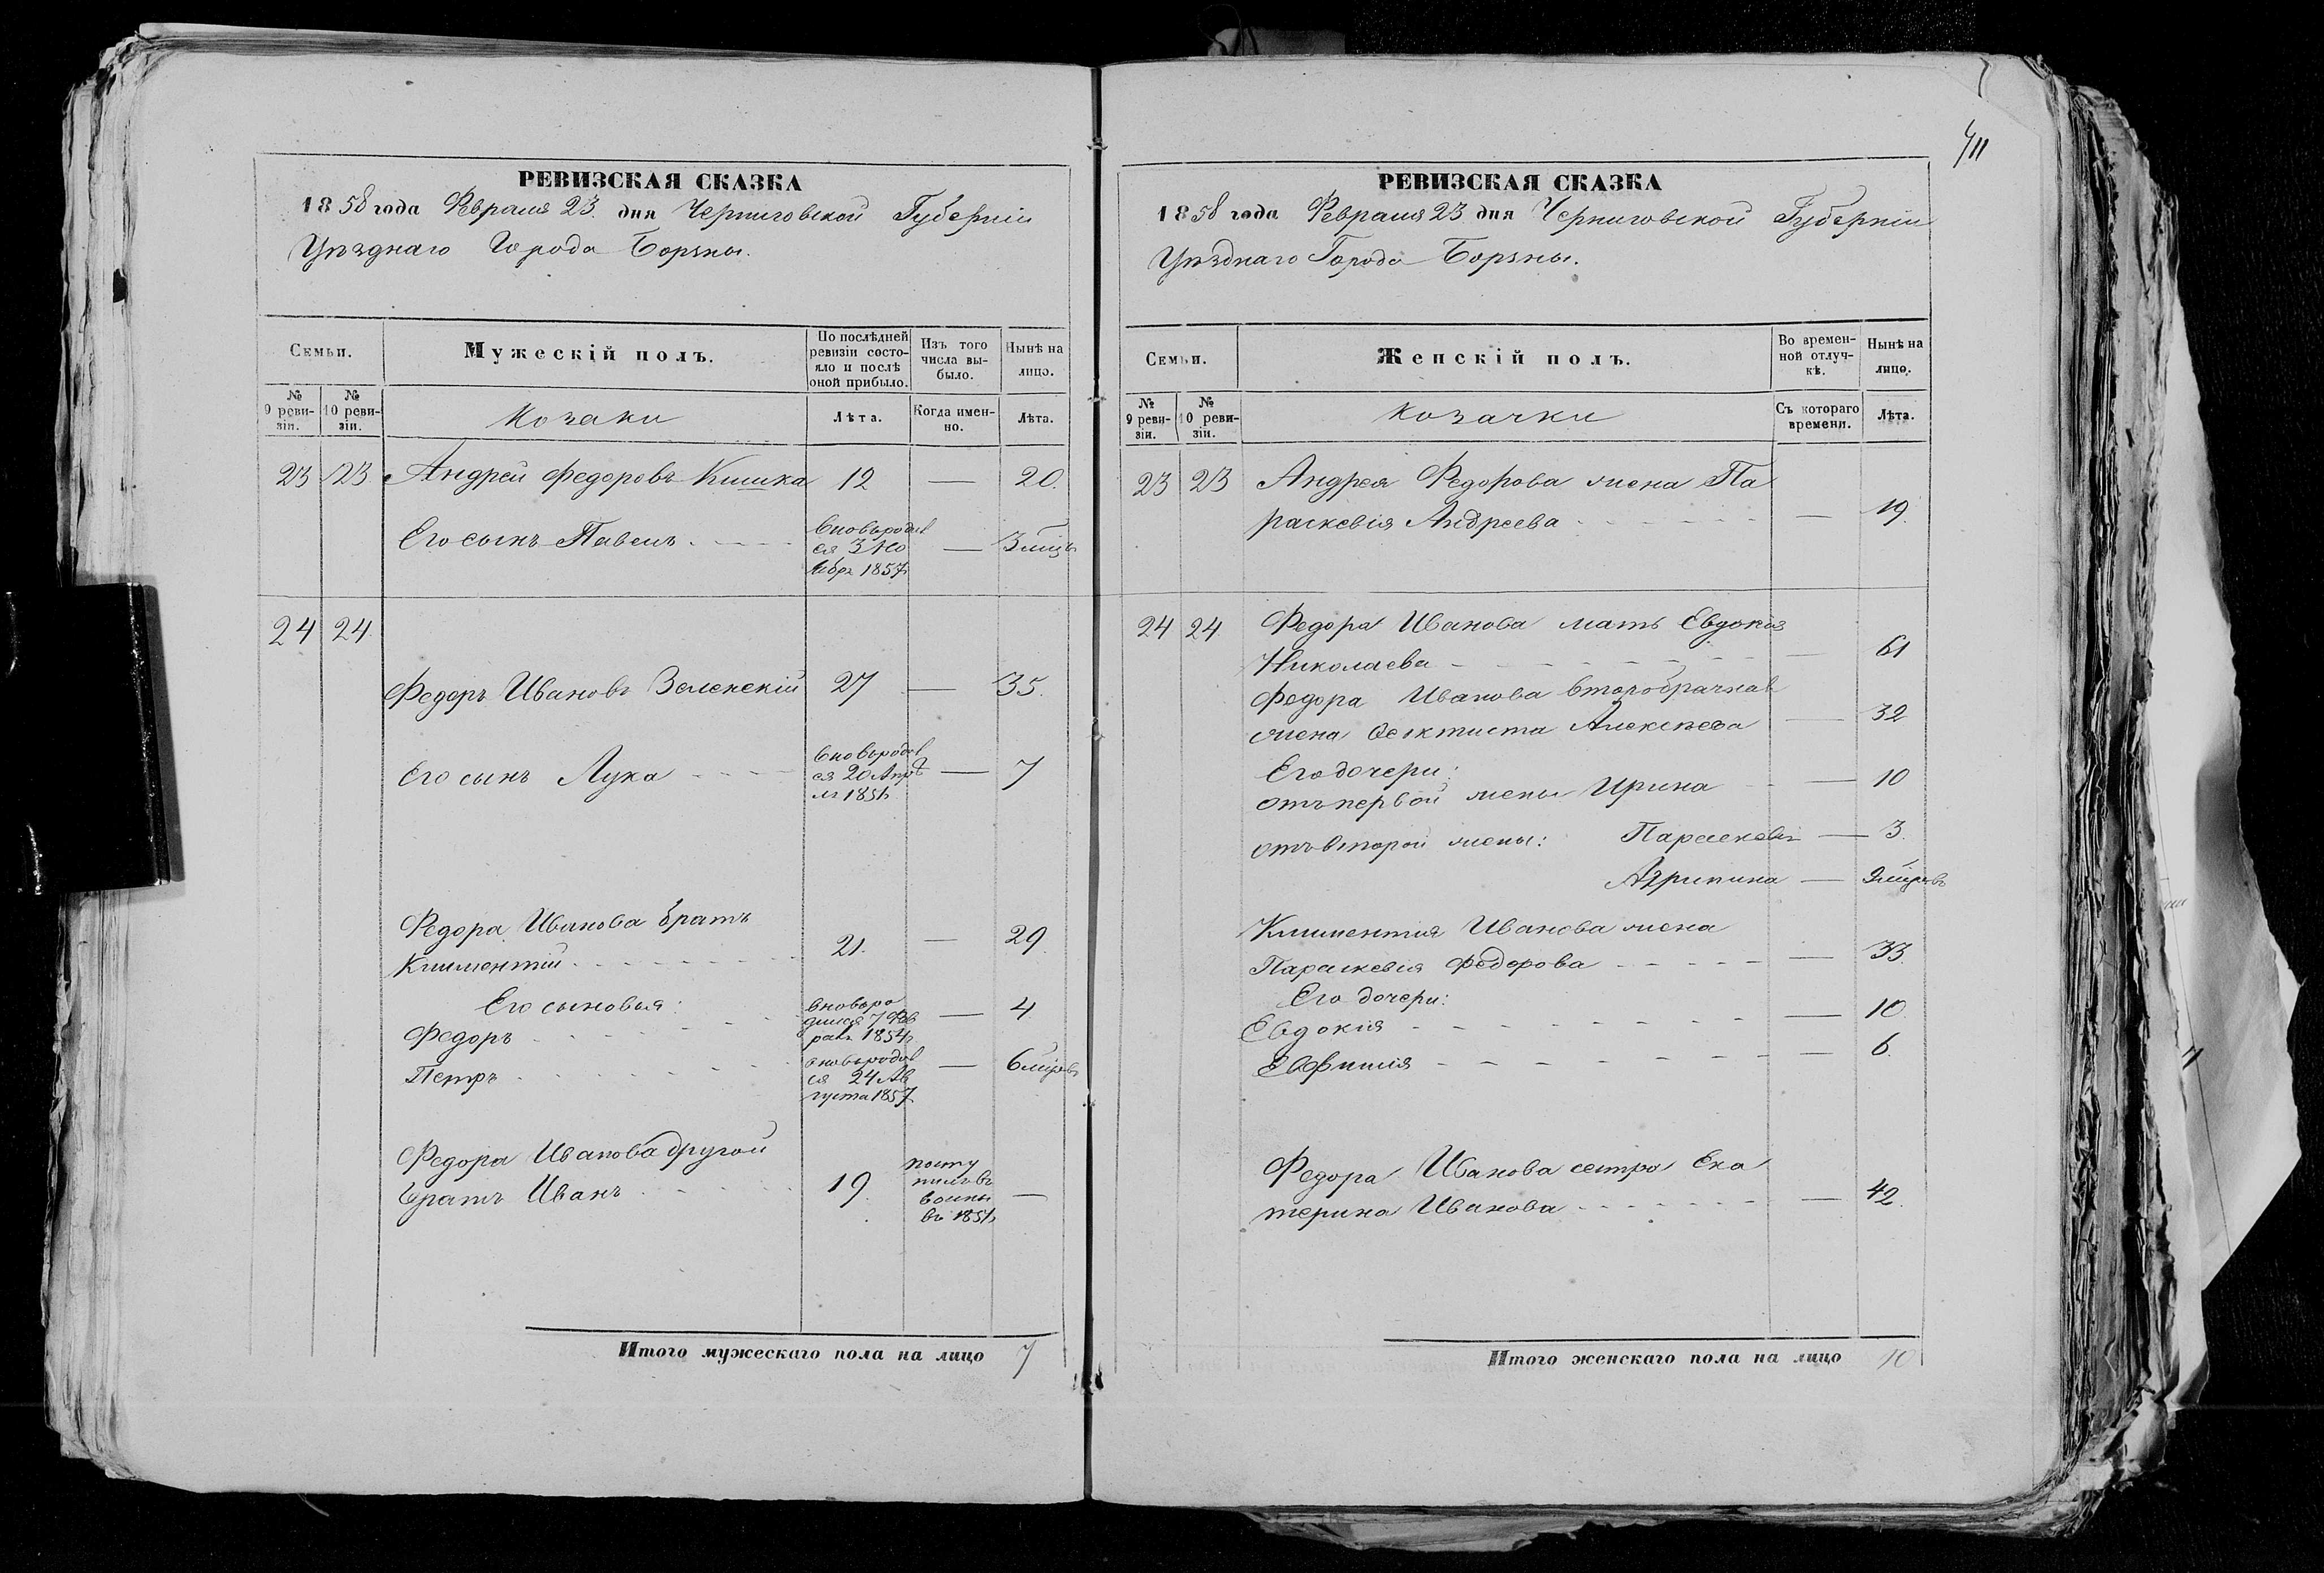 РЕВИЗСКАЯ СКАЗКА
1858 года Февраля 23 дня Черниговской Губерніи
Уѣзднаго Города Борзны.
Семьи.
Мужескій полъ.
По послѣдней ревизіи состояло и послѣ оной прибыло.
Изъ того числа выбыло.
Нынѣ на лицо.
№ 9 ревизіи.
№ 10 ревизіи.
Козаки
Лѣта.
Когда именно.
Лѣта.
23 23 Андрей Федоровъ Кишка 12 — 20.
Его сынъ Павелъ - - - вновьродил
ся 3 Но
ябр 1857 — 3 мцъ
24 24.
Федоръ Ивановъ Зеленскій 27 — 35.
Его сынъ Лука - - - вновьродил
ся 20 Апрѣ
ля 1851 — 7
Федора Иванова братъ
Климентій - - - 21. — 29.
Его сыновья:
Федоръ - - - вновьро
дился 7 Фев
рал 1854 — 4
Петръ - - - вновьродил
ся 24 Ав
густа 1857 — 6 мцовъ
Федора Иванова другой
братъ Иванъ - - - 19. посту
пилъ въ
воины
въ 1851 —
Итого мужескаго пола на лицо 7
411
РЕВИЗСКАЯ СКАЗКА
1858 года Февраля 23 дня Черниговской Губерніи
Уѣзднаго Города Борзны.
Семьи.
Женскій полъ.
Во временной отлучкѣ.
Нынѣ на лицо.
№ 9 ревизіи.
№ 10 ревизіи.
Козачки
Съ котораго времени.
Лѣта.
23 23 Андрея Федорова жена Па
раскевія Андреева - - - — 19.
24 24. Федора Иванова мать Евдокія
Николаева - - - — 61
Федора Иванова второбрачная
жена Феоктиста Алексѣева — 32
Его дочери:
отъ первой жены Ирина — 10
отъ второй жены: Параскевія — 3.
Агрипина — 9 мцовъ
Климентія Иванова жена
Параскевія Федорова - - - — 33.
Его дочери:
Евдокія - - - — 10.
Евфимія - - - — 6.
Федора Иванова сестра Ека
терина Иванова - - - — 42.
Итого женскаго пола на лицо 10